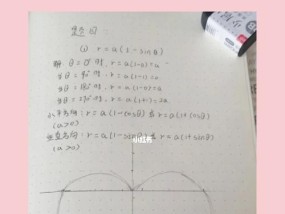 (1) r = a(1-sinθ)
当θ=0°时, r=a(1-0)=a
当θ=90°时, r=a(1-1)=0
当θ=180°时, r=a(1-0)=a
当θ=270°时, r=a(1+1)=2a
水平方向: r=a(1-cosθ) 或 r=a(1+cosθ)
(a>0)
垂直方向: r=a(1-sinθ) 或 r=a(1+sinθ)
(a>0)
小红书